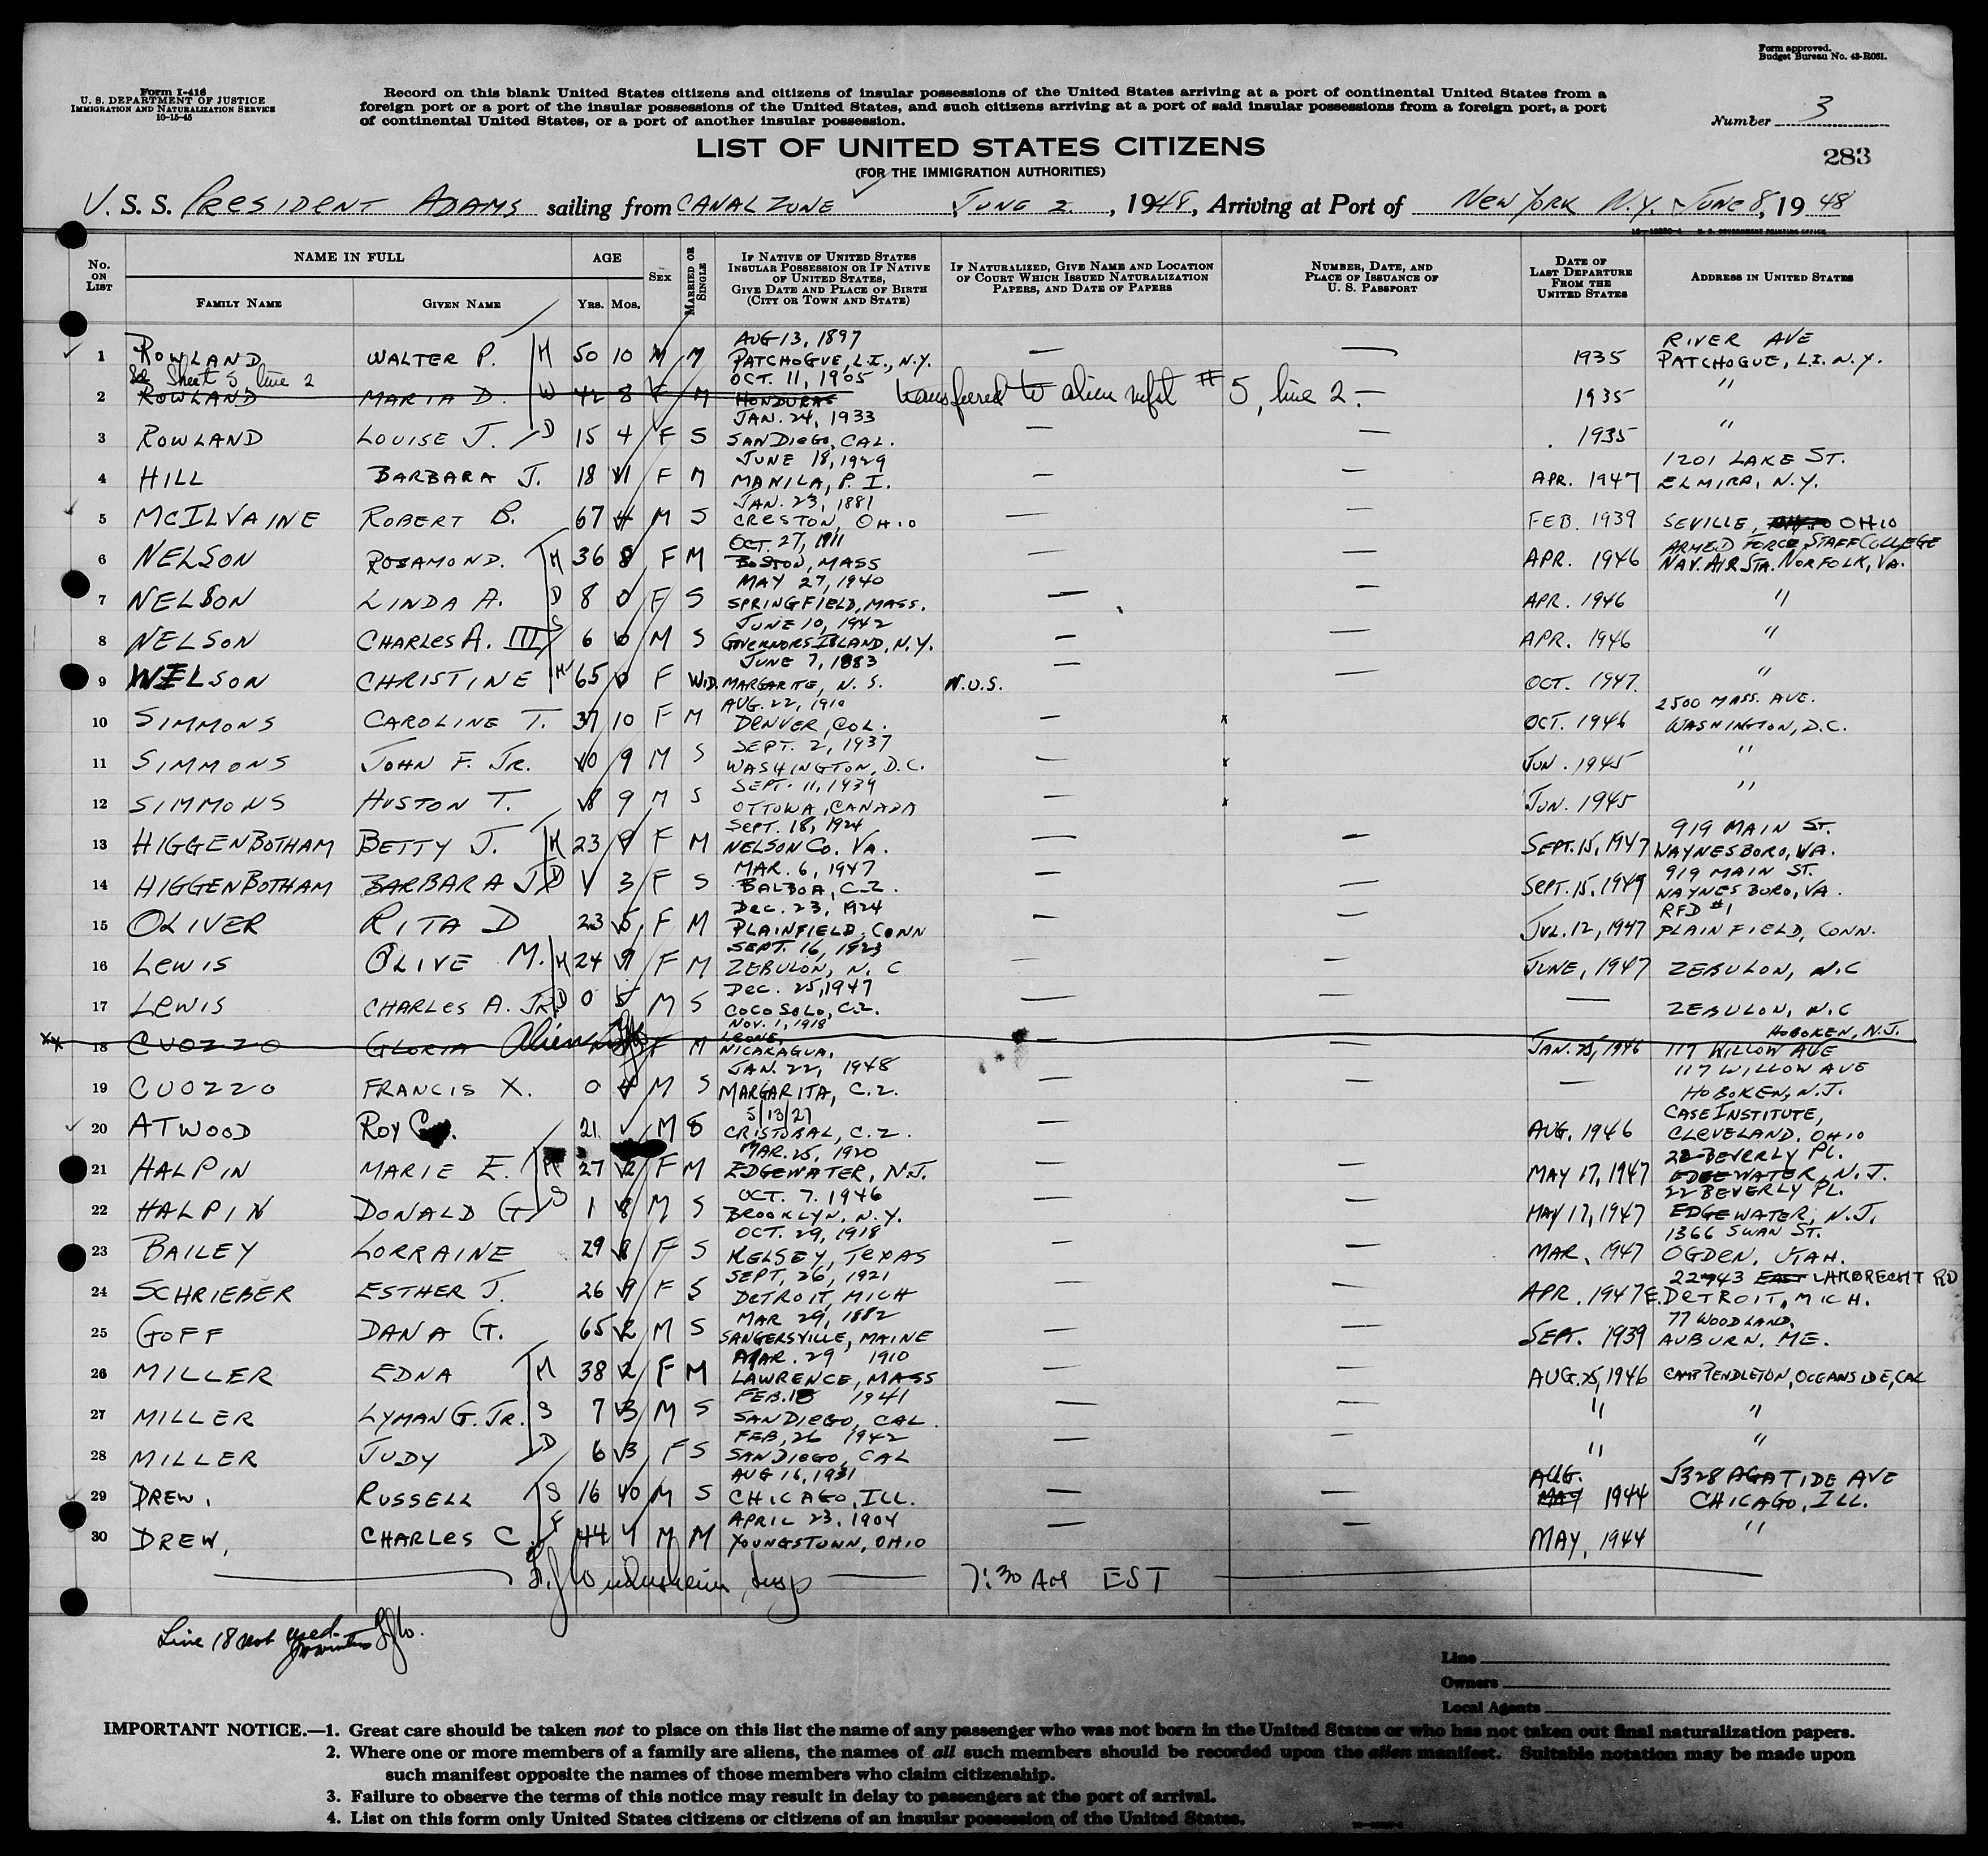 Form approved.
Budget Bureau No. 43-R051.
Form I-416
U. S. DEPARTMENT OF JUSTICE
IMMIGRATION AND NATURALIZATION SERVICE
10-15-45
Record on this blank United States citizens and citizens of insular possessions of the United States arriving at a port of continental United States from a
foreign port or a port of the insular possessions of the United States, and such citizens arriving at a port of said insular possessions from a foreign port, a port
of continental United States, or a port of another insular possession.
Number 3
283
LIST OF UNITED STATES CITIZENS
(FOR THE IMMIGRATION AUTHORITIES)
U. S. S. PRESIDENT ADAMS sailing from CANAL ZONE JUNE 2, 1948, Arriving at Port of NEW YORK N.Y. JUNE 8, 1948
No. ON LIST
NAME IN FULL
FAMILY NAME
GIVEN NAME
AGE
YRS. MOS.
SEX
MARRIED OR SINGLE
IF NATIVE OF UNITED STATES
INSULAR POSSESSION OR IF NATIVE
OF UNITED STATES,
GIVE DATE AND PLACE OF BIRTH
(CITY OR TOWN AND STATE)
IF NATURALIZED, GIVE NAME AND LOCATION
OF COURT WHICH ISSUED NATURALIZATION
PAPERS, AND DATE OF PAPERS
NUMBER, DATE, AND
PLACE OF ISSUANCE OF
U. S. PASSPORT
DATE OF
LAST DEPARTURE
FROM THE
UNITED STATES
ADDRESS IN UNITED STATES
AUG 13, 1897 RIVER AVE
1 ROWLAND WALTER P. H 50 10 M M PATCHOGUE, L.I., N.Y. — — 1935 PATCHOGUE, L.I. N.Y.
See Sheet 5, line 2 OCT. 11, 1905
2 ROWLAND MARIA D. W 42 8 F M HONDURAS transferred to alien mfst #5, line 2 — 1935 "
JAN. 24, 1933
3 ROWLAND LOUISE J. D 15 4 F S SAN DIEGO, CAL. — — 1935 "
JUNE 18, 1929 1201 LAKE ST.
4 HILL BARBARA J. 18 11 F M MANILA, P. I. — — APR. 1947 ELMIRA, N.Y.
JAN. 23, 1881
5 MCILVAINE ROBERT B. 67 4 M S CRESTON, OHIO — — FEB. 1939 SEVILLE, OHIO
OCT. 27, 1911 ARMED FORCE STAFF COLLEGE
6 NELSON ROSAMOND. M 36 8 F M BOSTON, MASS — — APR. 1946 NAV. AIR STA. NORFOLK, VA.
MAY 27, 1940
7 NELSON LINDA A. D 8 0 F S SPRINGFIELD, MASS. — — APR. 1946 "
JUNE 10, 1942
8 NELSON CHARLES A. III S 6 0 M S GOVERNORS ISLAND, N.Y. — — APR. 1946 "
JUNE 7, 1883
9 NELSON CHRISTINE M 65 0 F WID. MARGARITE, N. S. N.U.S. — OCT. 1947. "
AUG. 22, 1910 2500 MASS. AVE.
10 SIMMONS CAROLINE T. 37 10 F M DENVER, COL. — x OCT. 1946 WASHINGTON, D.C.
SEPT. 2, 1937
11 SIMMONS JOHN F. JR. 10 9 M S WASHINGTON, D.C. — x JUN. 1945 "
SEPT. 11, 1939
12 SIMMONS HUSTON T. 8 9 M S OTTOWA, CANADA — x JUN. 1945 "
SEPT. 18, 1924 919 MAIN ST.
13 HIGGENBOTHAM BETTY J. M 23 9 F M NELSON CO. VA. — — SEPT. 15, 1947 WAYNESBORO, VA.
MAR. 6, 1947 919 MAIN ST.
14 HIGGENBOTHAM BARBARA J. D 1 3 F S BALBOA, C.Z. — — SEPT. 15, 1947 WAYNESBORO, VA.
DEC. 23, 1924 RFD #1
15 OLIVER RITA D 23 5 F M PLAINFIELD, CONN — — JUL. 12, 1947 PLAINFIELD, CONN.
SEPT. 16, 1923
16 LEWIS OLIVE M. M 24 9 F M ZEBULON, N. C — — JUNE, 1947 ZEBULON, N.C
DEC. 25, 1947
17 LEWIS CHARLES A. JR. 0 5 M S COCO SOLO, C.Z. — — — ZEBULON, N.C
NOV. 1, 1918 HOBOKEN, N.J.
xx 18 CUOZZO GLORIA Alien F M LEONE, NICARAGUA, — — JAN. 25, 1946 117 WILLOW AVE
JAN. 22, 1948 117 WILLOW AVE
19 CUOZZO FRANCIS X. 0 4 M S MARGARITA, C.Z. — — — HOBOKEN, N.J.
5/13/27 CASE INSTITUTE,
20 ATWOOD ROY C. 21 M S CRISTOBAL, C.Z. — — AUG. 1946 CLEVELAND, OHIO
MAR. 25, 1920 22 BEVERLY PL.
21 HALPIN MARIE E. M 27 2 F M EDGEWATER, N.J. — — MAY 17, 1947 EDGEWATER, N.J.
OCT. 7. 1946 22 BEVERLY PL.
22 HALPIN DONALD G. S 1 8 M S BROOKLYN, N.Y. — — MAY 17, 1947 EDGEWATER, N.J.
OCT. 29, 1918 1366 SWAN ST.
23 BAILEY LORRAINE 29 8 F S KELSEY, TEXAS — — MAR. 1947 OGDEN, UTAH.
SEPT, 26, 1921 22943 EAST LAMBRECHT RD
24 SCHRIEBER ESTHER J. 26 9 F S DETROIT, MICH — — APR. 1947 E. DETROIT, MICH.
MAR 29, 1882 77 WOODLAND,
25 GOFF DANA G. 65 2 M S SANGERSVILLE, MAINE — — SEPT. 1939 AUBURN. ME.
MAR. 29 1910
26 MILLER EDNA M 38 2 F M LAWRENCE, MASS — — AUG. 25, 1946 CAMP PENDLETON, OCEANSIDE, CAL
FEB. 18 1941
27 MILLER LYMAN G. JR. S 7 3 M S SAN DIEGO, CAL. — — " "
FEB, 26 1942
28 MILLER JUDY D 6 3 F S SAN DIEGO, CAL — — " "
AUG 16, 1931 AUG. 5328 AGATIDE AVE
29 DREW, RUSSELL S 16 10 M S CHICAGO, ILL. — — MAY 1944 CHICAGO, ILL.
APRIL 23, 1904
30 DREW, CHARLES C. F 44 1 M M YOUNGSTOWN, OHIO — — MAY, 1944 "
Insp 7:30 AM EST
Line 18 not used.
Line
Owners
Local Agents
IMPORTANT NOTICE.—1. Great care should be taken not to place on this list the name of any passenger who was not born in the United States or who has not taken out final naturalization papers.
2. Where one or more members of a family are aliens, the names of all such members should be recorded upon the alien manifest. Suitable notation may be made upon
such manifest opposite the names of those members who claim citizenship.
3. Failure to observe the terms of this notice may result in delay to passengers at the port of arrival.
4. List on this form only United States citizens or citizens of an insular possession of the United States.